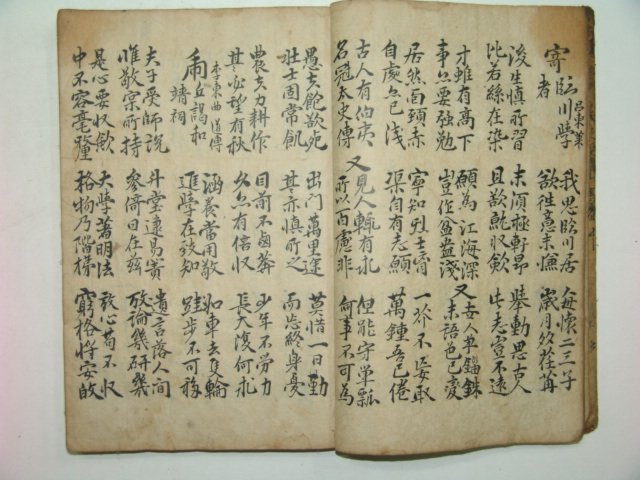 寄臨川學 呂東萊 我思臨川居 每懷二三子
者 欲往意未慊 歲月多荏苒
後生慎所習 末須極軒昂 擧動思古人
比若絲在染 且欲就收斂 此志豈不遠
才雖有高下 願爲江海深 又 士人爭錙銖
事亦要強勉 豈作盆盎淺 未語色已變
居然面頸赤 寧知烈士胸 一芥不妄取
自處亦已淺 渠自有志願 萬鍾吾已倦
古人有伯夷 又 見人輒有求 但能守箪瓢
名冠太史傳 所以百慮非 何事不可爲
愚夫飽欲死 出門萬里途 莫惜一日勤
壯士固常飢 其亦愼所之 而忘終身憂
農夫力耕作 目前不鹵莽 少年不勞力
其必望有秋 久亦有倍收 長大復何求
李東曲 道傳
丘謁和 涵養當用敬 如車去隻輪
靖祠 進學在致知 跬步不可移
夫子受師說 升堂逮易簀 遺言落人間
惟敬宗所持 參倚日在茲 放論幾研幾
是心要収斂 大學著明法 敬心苟不収
中不容毫釐 格物乃階梯 窮格將安放